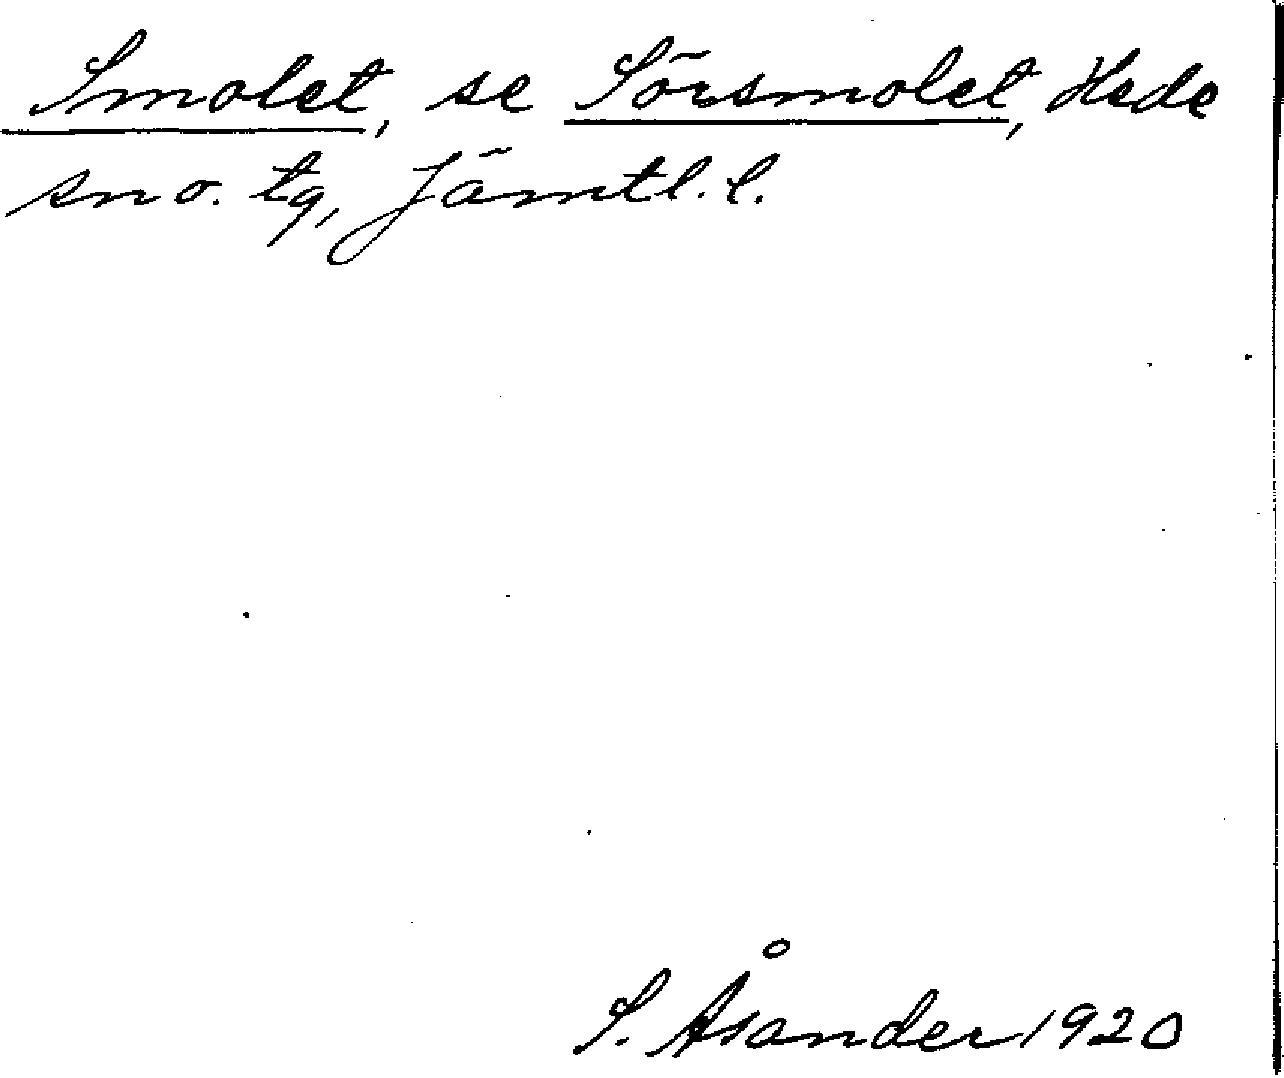 Smolet, se Sörsmolet, Hede
sn o. tg, Jämtl. l.
S. Åsander 1920